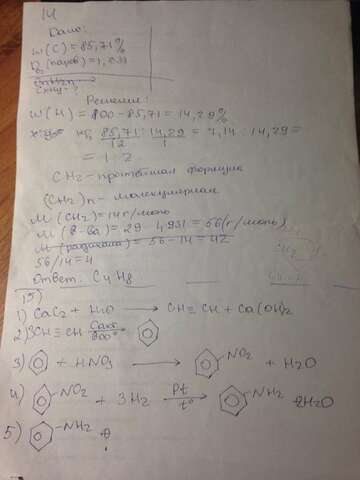 14
Дано:
w(C) = 85,71%
D (паров) = 1,931
CxHy - ?
Решение:
w(H) = 100 - 85,71 = 14,29%
x:y = 85,71/12 : 14,29/1 = 7,14 : 14,29 =
= 1:2
CH2 - простейшая формула
(CH2)n - молекулярная
M(CH2) = 14 г/моль
M(в-ва) = 29 · 1,931 = 56 (г/моль)
M (радикала) = 56 - 14 = 42
56/14 = 4
Ответ: C4H8
15)
1) CaC2 + H2O → CH≡CH + Ca(OH)2
2) 3CH≡CH Cакт
3) + HNO3 → -NO2 + H2O
4) -NO2 + 3H2 Pt/t° → -NH2 2H2O
5) -NH2